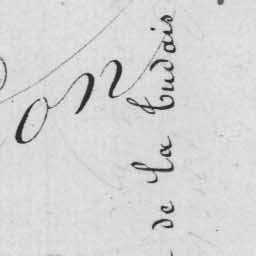 on
de la Tudais